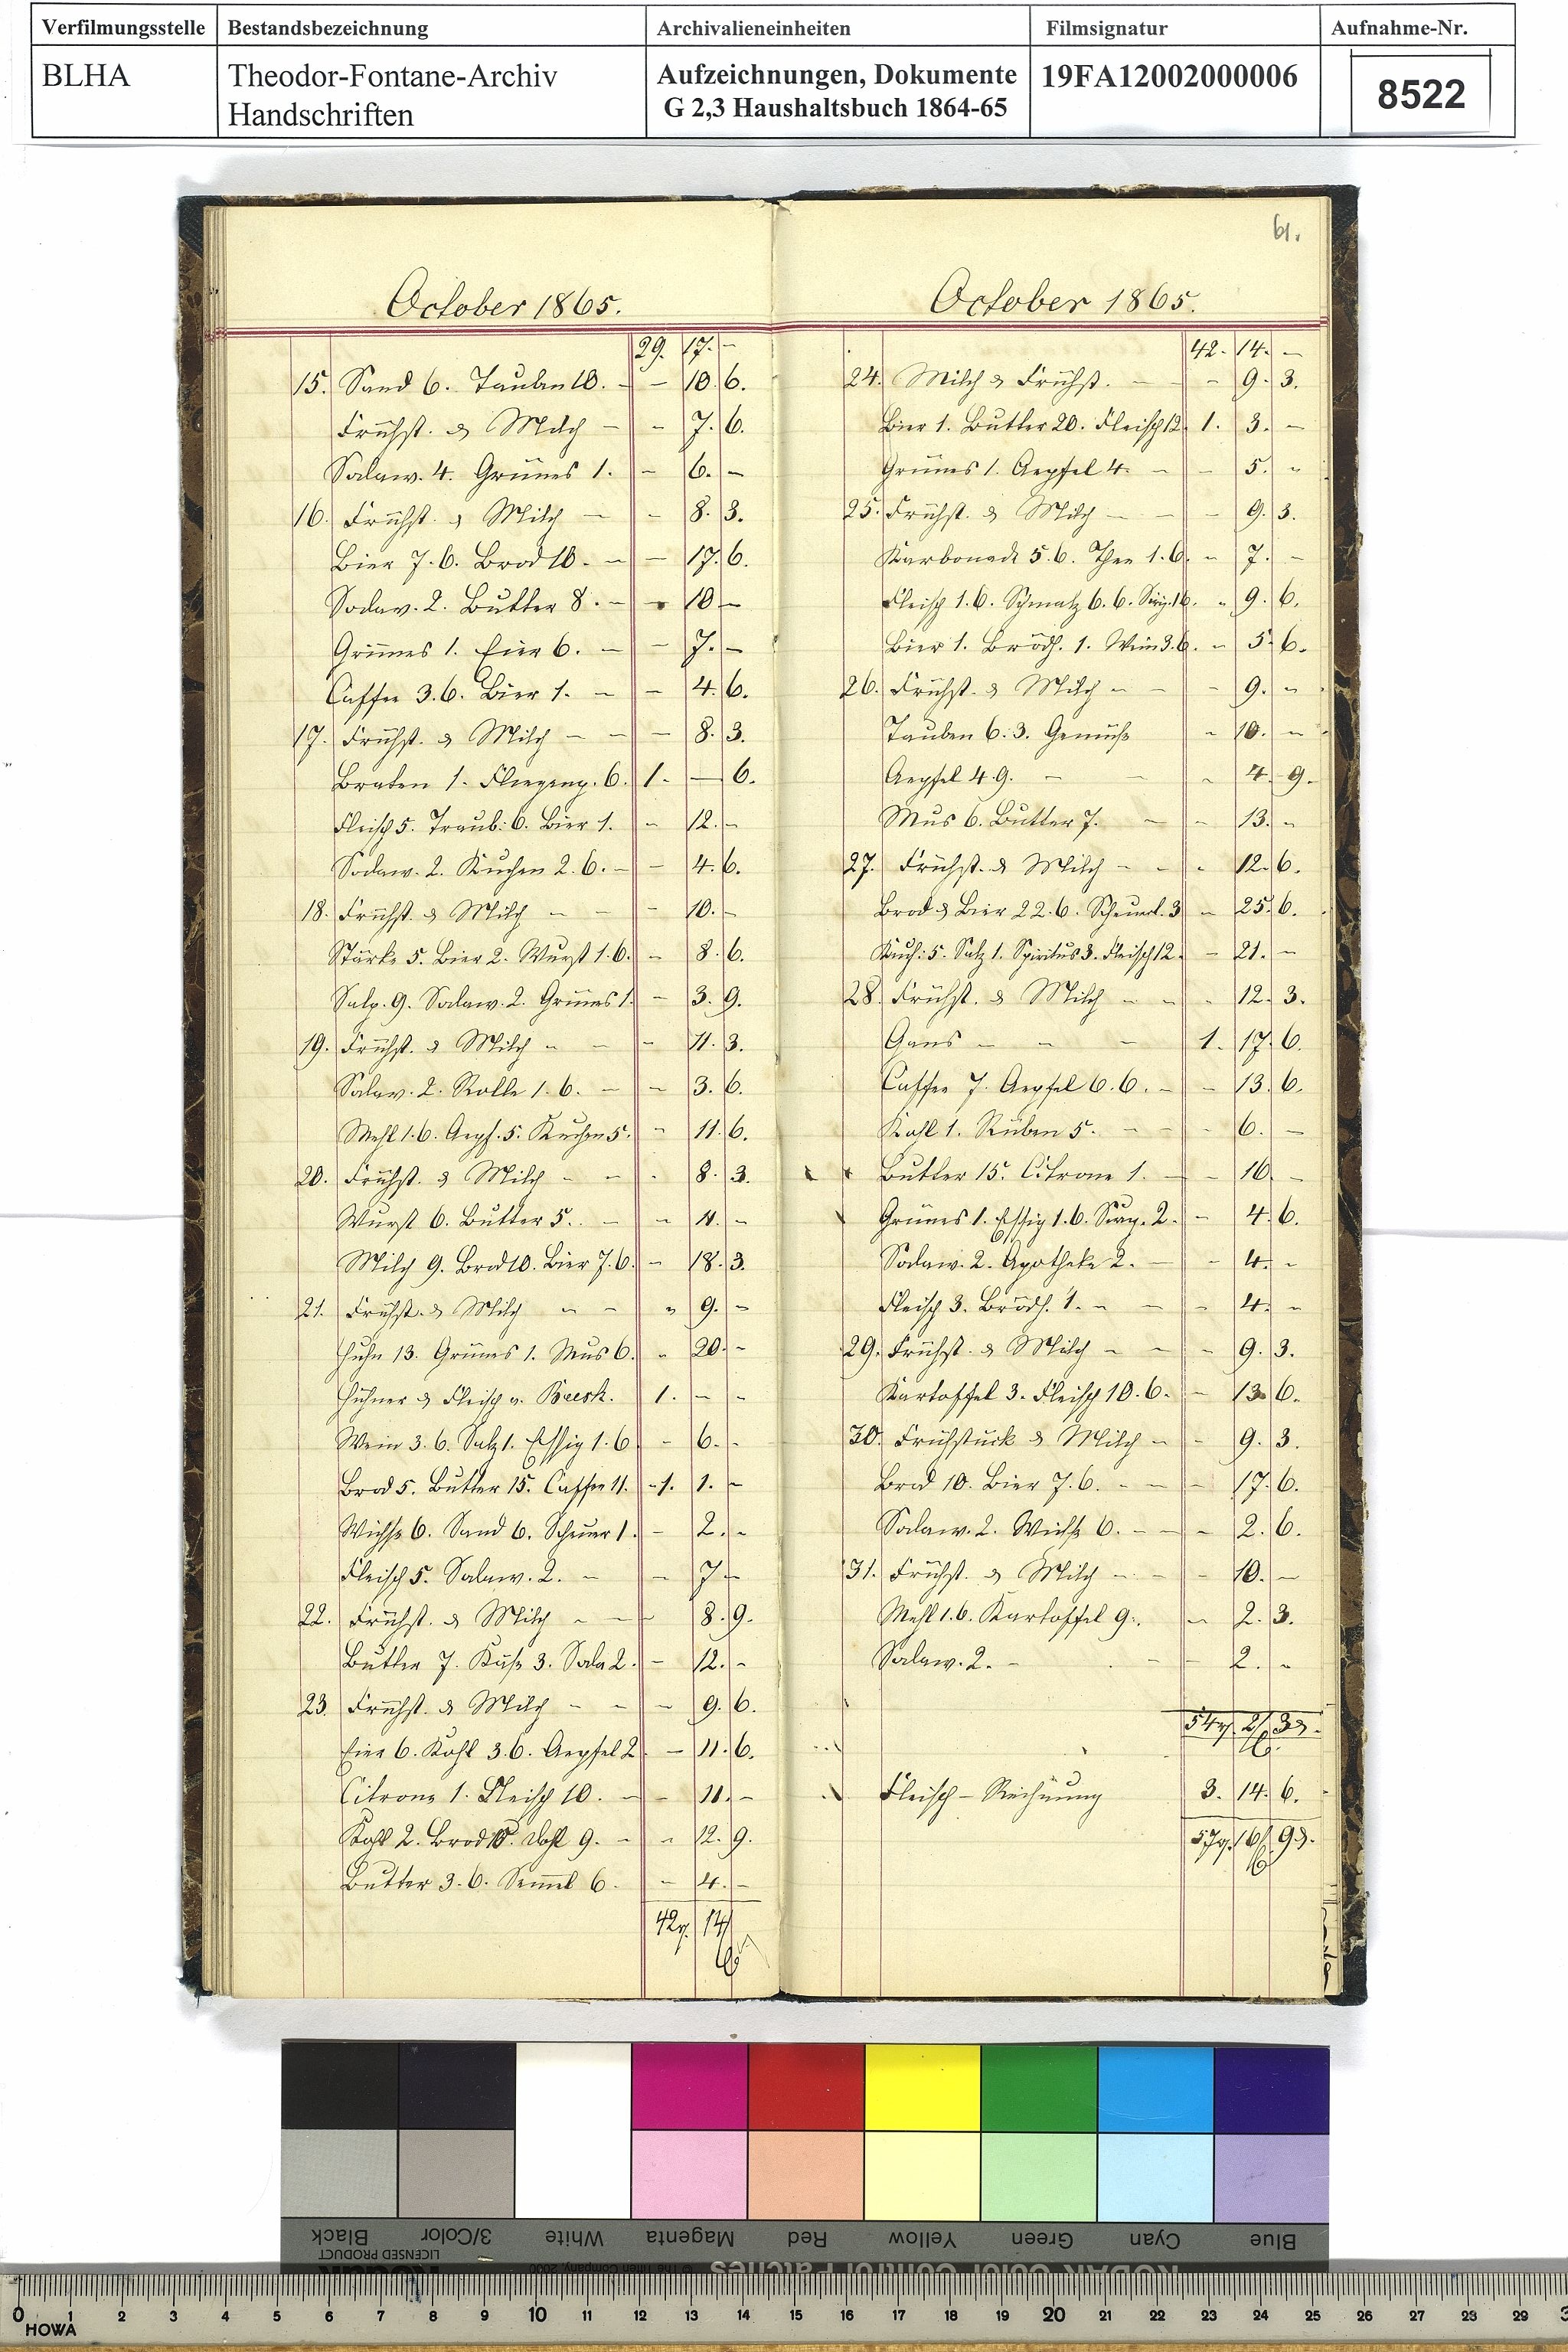 Verfilmungsstelle Bestandsbezeichnung Archivalieneinheiten Filmsignatur Aufnahme-Nr.
BLHA Theodor-Fontane-Archiv Handschriften Aufzeichnungen, Dokumente G 2,3 Haushaltsbuch 1864-65 19FA12002000006 8522
October 1865.
29. 17. -
15. Sand 6. Tauben 10. - - 10. 6.
Frühst. & Milch - - 7. 6.
Sodaw. 4. Grünes 1. - 6. -
16. Frühst. & Milch - - 8. 3.
Bier 7. 6. Brod 10. - - 17. 6.
Sodaw. 2. Butter 8. - - 10 -
Grünes 1. Eier 6. - - 7. -
Caffee 3. 6. Bier 1. - - 4. 6.
17. Frühst. & Milch - - - 8. 3.
Braten 1. 6. 1. - 6.
Fleisch 5. Traub: 6. Bier 1. - 12. -
Sodaw. 2. Kuchen 2. 6. - - 4. 6.
18. Frühst. & Milch - - - 10. -
Stärke 5. Bier 2. Wurst 1. 6. - 8. 6.
9. Sodaw. 2. Grünes 1. - 3. 9.
19. Frühst. & Milch - - - 11. 3.
Sodaw. 2. Rolle 1. 6. - - 3. 6.
Mehl 1. 6. Aepf. 5. Kuchen 5. - 11. 6.
20. Frühst. & Milch - - - 8. 3.
Wurst 6. Butter 5. - - 11. -
Milch 9. Brod 10. Bier 7. 6. - 18. 3.
21. Frühst. & Milch - - - 9. -
Huhn 13. Grünes 1. Mus 6. - 20. -
Hühner & Fleisch v. Beesk. 1. - -
Wein 3. 6. Salz 1. Essig 1. 6 - 6. -
Brod 5. Butter 15. Caffee 11. - 1. 1. -
Wichse 6. Sand 6. Scheuer 1. - 2. -
Fleisch 5. Sodaw. 2. - - 7 -
22. Frühst. & Milch - - - 8. 9.
Butter 7. Käse 3. Soda 2. - 12. -
23. Frühst. & Milch - - - 9. 6.
Eier 6. Kohl 3. 6. Aepfel 2. - 11. 6.
Citrone 1. Fleisch 10. - - 11. -
Kohl 2. Brod 10. 9. - - 12. 9.
Butter 3. 6. Semmel 6. - 4. -
42 14
61.
October 1865.
42. 14. -
24. Milch & Frühst. - - - 9. 3.
Bier 1. Butter 20. Fleisch 12. 1. 3. -
Grünes 1. Aepfel 4. - - 5. -
25. Frühst. & Milch - - - 9. 3.
Karbonade 5. 6. Thee 1. 6. - 7. -
Fleisch 1. 6. Schmalz 6. 6. - 9. 6.
Bier 1. Brödch. 1. Wein 3. 6. - 5. 6.
26. Frühst. & Milch - - - 9. -
Tauben 6. 3. Gemüse - 10. -
Aepfel 4. 9. - - - 4. 9.
Mus 6. Butter 7. - - 13. -
27. Frühst. & Milch - - - 12. 6.
Brod & Bier 22. 6. Scheuerl. 3 - 25. 6.
Kuch: 5. Salz 1. Spiritus 3. Fleisch 12. - 21. -
28. Frühst. & Milch - - - 12. 3.
Gans - - - 1. 17. 6.
Caffee 7. Aepfel 6. 6. - - 13. 6.
Kohl 1. Rüben 5. - - - 6. -
Butter 15. Citrone 1. - - 16. -
Grünes 1. Essig 1. 6. 2. - 4. 6.
Sodaw. 2. Apotheke 2. - - 4. -
Fleisch 3. Brödch. 1. - - - 4. -
29. Frühst. & Milch - - - 9. 3.
Kartoffel 3. Fleisch 10. 6. - 13. 6.
30. Frühstück & Milch - - 9. 3.
Brod 10. Bier 7. 6. - - - 17. 6.
Sodaw. 2. Wichse 6. - - - 2. 6.
31. Frühst. & Milch - - - 10. -
Mehl 1. 6. Kartoffel 9. - 2. 3.
Sodaw. 2. - - - 2. -
54 2 3
Fleisch-Rechnung 3. 14. 6.
57 16 9
Black 3/Color White Magenta Red Yellow Green Cyan Blue
LICENSED PRODUCT
Kodak KODAK Color Control Patches
0 1 2 3 4 5 6 7 8 9 10 11 12 13 14 15 16 17 18 19 20 21 22 23 24 25 26 27 28 29
HOWA